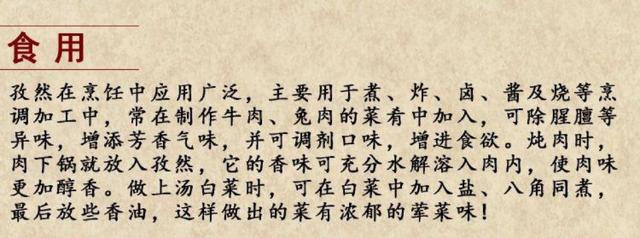 食用
孜然在烹饪中应用广泛，主要用于煮、炸、卤、酱及烧等烹
调加工中，常在制作牛肉、兔肉的菜肴中加入，可除腥膻等
异味，增添芳香气味，并可调剂口味，增进食欲。炖肉时，
肉下锅就放入孜然，它的香味可充分水解溶入肉内，使肉味
更加醇香。做上汤白菜时，可在白菜中加入盐、八角同煮，
最后放些香油，这样做出的菜有浓郁的荤菜味！